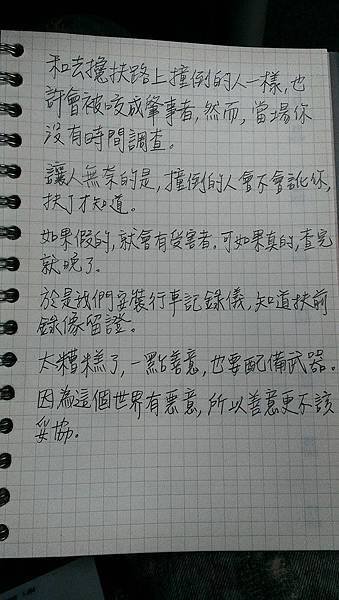 和去攙扶路上撞倒的人一樣,也
許會被咬成肇事者,然而,當場你
沒有時間調查。
讓人無奈的是,撞倒的人會不會訛你,
扶了才知道。
如果假的,就會有受害者,可如果真的,查完
就晚了。
於是我們安裝行車記錄儀,知道扶前
錄像留證。
太糟糕了,一點善意,也要配備武器。
因為這個世界有惡意,所以善意更不該
妥協。